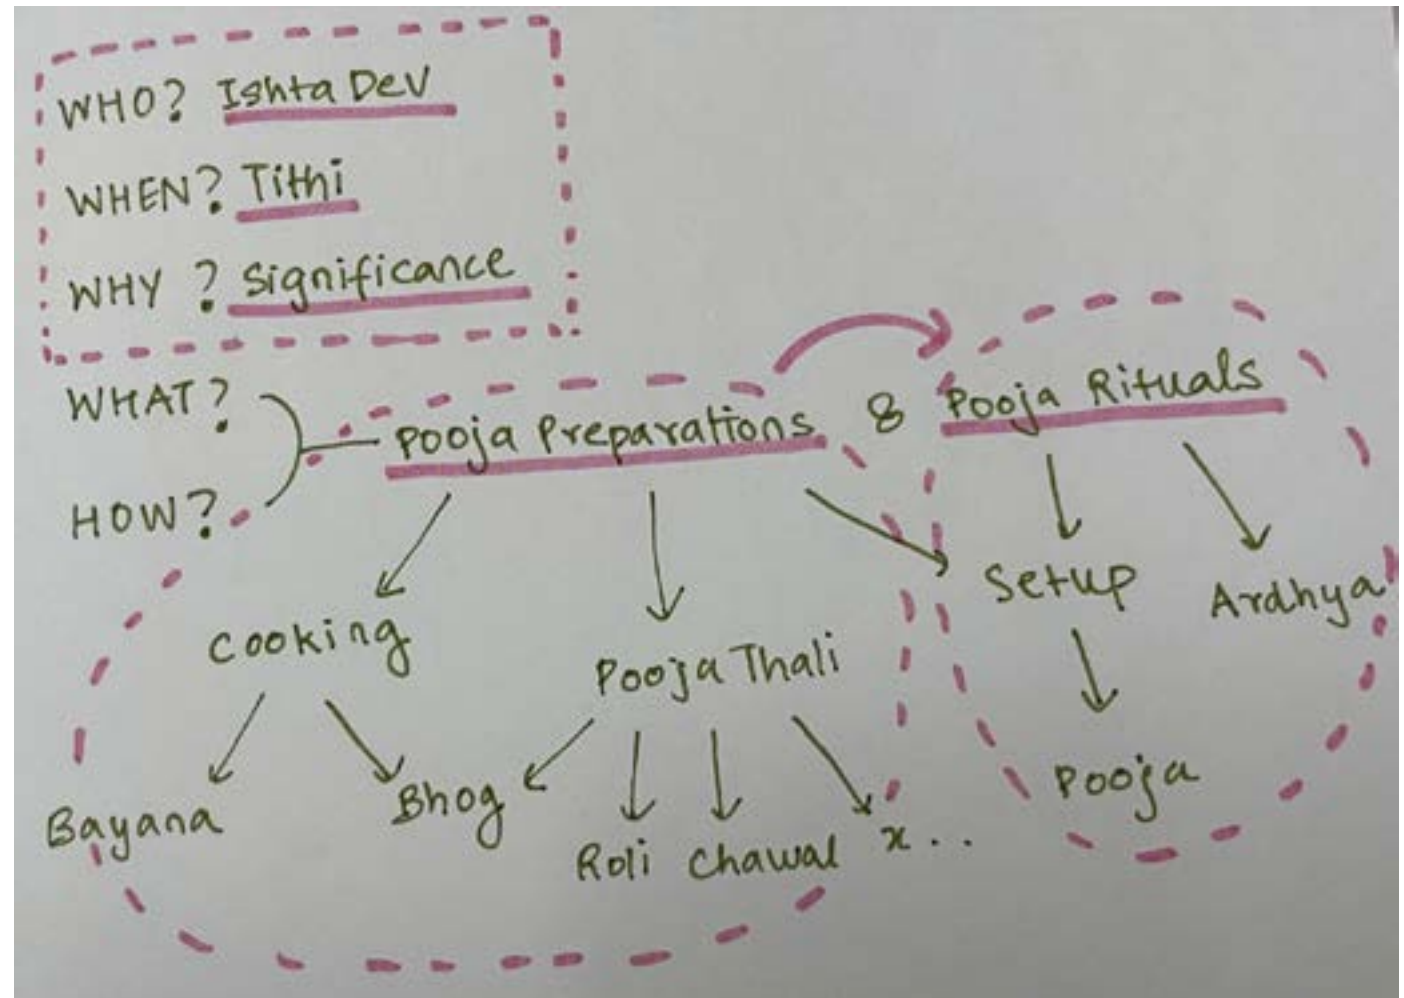 WHO? Ishta Dev
WHEN? Tithi
WHY? Significance
WHAT?
HOW?
Pooja Preparations & Pooja Rituals
Cooking
Pooja Thali
Setup
Ardhya
Bayana
Bhog
Roli Chawal x..
Pooja